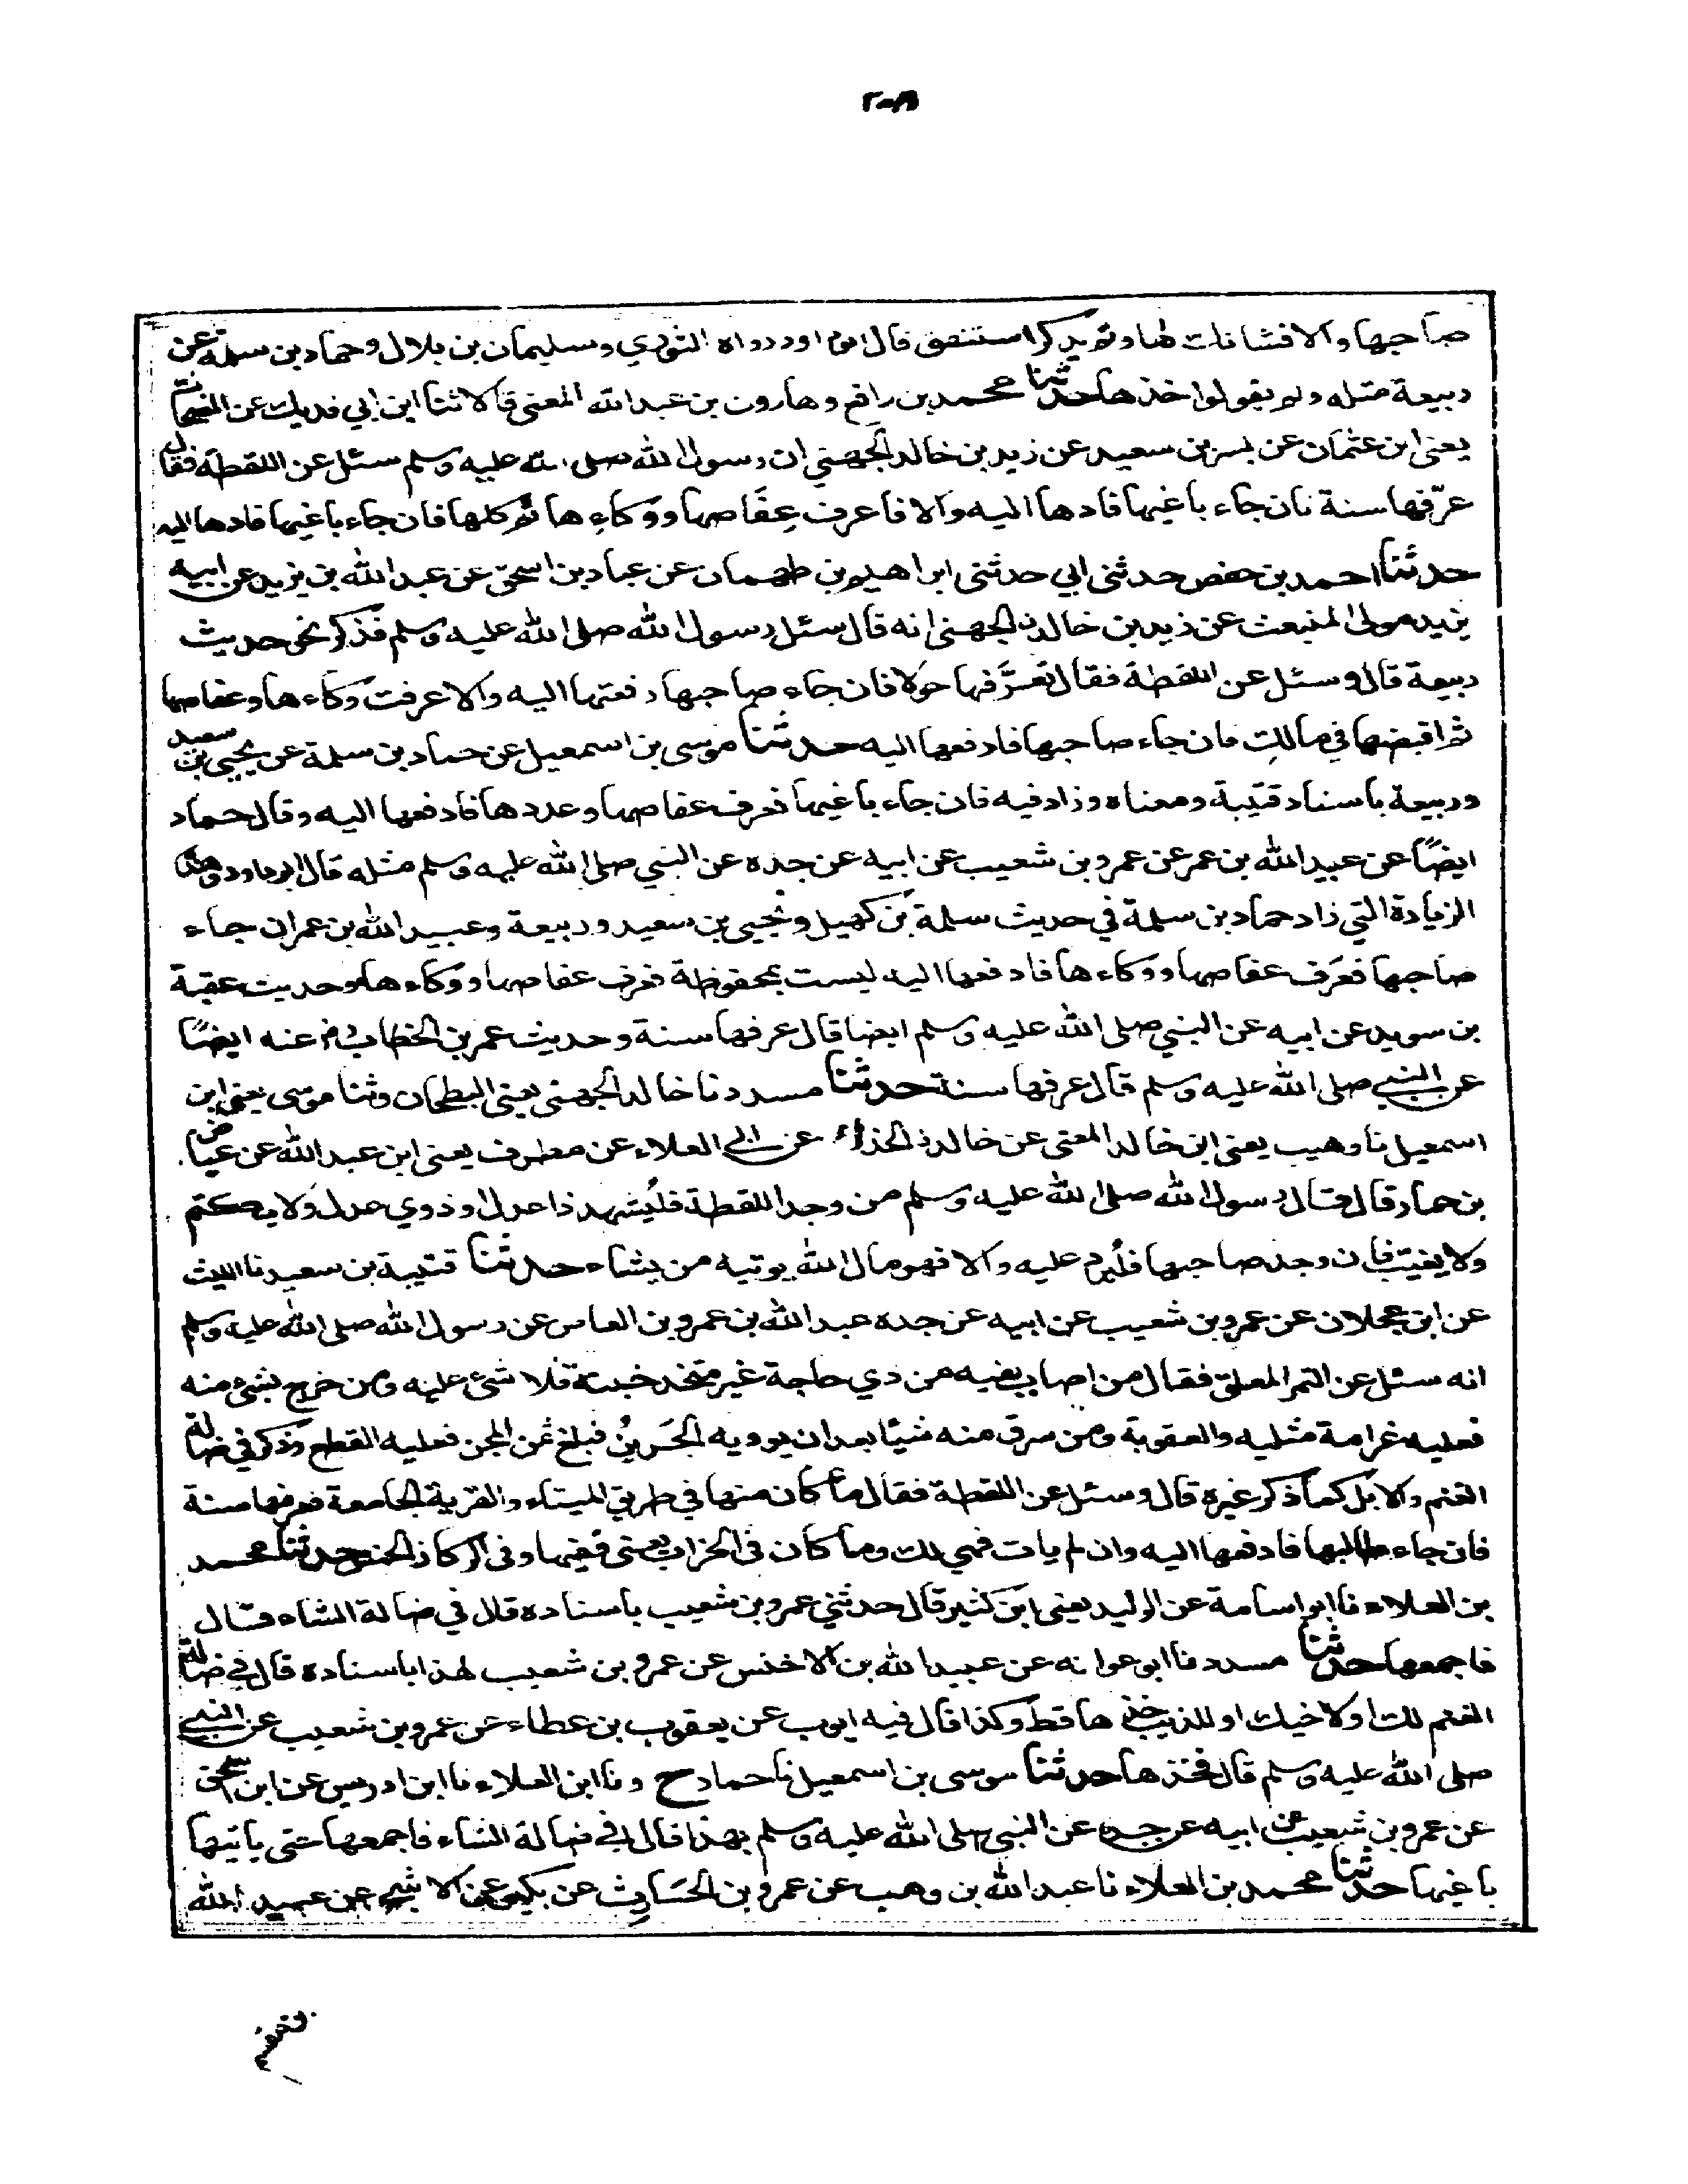 صاحبها والا فشانك بها ولم يذكر استنفق قال ابو داود رواه الثوري وسليمان بن بلال وحماد بن سلمة عن
ربيعة مثله ولم يقولوا خذها حدثنا محمد بن رافع وهارون بن عبد الله المعنى قالا ثنا ابن ابي فديك عن الضحاك
يعني ابن عثمان عن بسر بن سعيد عن زيد بن خالد الجهني ان رسول الله صلى الله عليه وسلم سئل عن اللقطة فقال
عرّفها سنة فان جاء باغيها فادها اليه والا فاعرف عِفَاصها ووكاءِها ثم كلها فان جاء باغيها فادها اليه
حدثنا احمد بن حفص حدثني ابي حدثني ابراهيم بن طهمان عن عباد بن اسحق عن عبد الله بن يزيد عن ابيه
يزيد مولى المنبعث عن زيد بن خالد الجهني انه قال سئل رسول الله صلى الله عليه وسلم فذكر نحو حديث
ربيعة قال وسئل عن اللقطة فقال تعرَّفها حولا فان جاء صاحبها دفعتها اليه والا عرفت وكاءها وعفاصها
ثم اقبضها في مالك فان جاء صاحبها فادفعها اليه حدثنا موسى بن اسمعيل عن حماد بن سلمة عن يحيى بن سعيد
وربيعة باسناد قتيبة ومعناه وزاد فيه فان جاء باغيها فعرف عفاصها وعددها فادفعها اليه وقال حماد
ايضًا عن عبيد الله بن عمر عن عمرو بن شعيب عن ابيه عن جده عن النبي صلى الله عليه وسلم مثله قال ابو داود وهذا
الزيادة التي زاد حماد بن سلمة في حديث سلمة بن كهيل ويحيى بن سعيد وربيعة وعبيد الله بن عمر ان جاء
صاحبها فعَرَف عفاصها ووكاءها فادفعها اليه ليست بمحفوظة فعرف عفاصها ووكاءها وحديث عقبة
بن سويد عن ابيه عن النبي صلى الله عليه وسلم ايضا قال عرفها سنة وحديث عمر بن الخطاب رضي عنه ايضًا
عن النبي صلى الله عليه وسلم قال عرفها سنة حدثنا مسدد نا خالد الجهني يعني الطحان وثنا موسى يعني ابن
اسمعيل نا وهيب يعني ابن خالد المعنى عن خالد الحذاء عن ابي العلاء عن مطرف يعني ابن عبد الله عن عياض
بن حماد قال قال رسول الله صلى الله عليه وسلم من وجد اللقطة فليُشهد ذا عدل او ذوي عدل ولا يكتم
ولا يغيب فان وجد صاحبها فليرد عليه والا فهو مال الله يوتيه من يشاء حدثنا قتيبة بن سعيد نا الليث
عن ابن عجلان عن عمرو بن شعيب عن ابيه عن جده عبد الله بن عمرو بن العاص عن رسول الله صلى الله عليه وسلم
انه سئل عن الثمر المعلق فقال من اصاب بفيه من ذي حاجة غير متخذ خبنة فلا شئ عليه ومن خرج بشئ منه
فعليه غرامة مثليه والعقوبة ومن سرق منه شيًا بعد ان يوويه الجَرينُ فبلغ ثمن المجن فعليه القطع وذكر في ضالة
الغنم والابل كما ذكر غيره قال وسئل عن اللقطة فقال ما كان منها في طريق الميتاء والقرية الجامعة فعرفها سنة
فان جاء طالبها فادفعها اليه وان لم يات فهي لك وما كان في الخراب يعني ففيها وفي الركاز الخمس حدثنا محمد
بن العلاء نا ابو اسامة عن الوليد يعني ابن كثير قال حدثني عمرو بن شعيب باسناده قال في ضالة الشاء قال
فاجمعها حدثنا مسدد نا ابو عوانه عن عبيد الله بن الاخنس عن عمرو بن شعيب بهذا باسناده قال في ضالة
الغنم لك او لاخيك او للذيب خذها قط وكذا قال فيه ايوب عن يعقوب بن عطاء عن عمرو بن شعيب عن النبي
صلى الله عليه وسلم قال فخذها حدثنا موسى بن اسمعيل نا حماد ح ونا ابن العلاء نا ابن ادريس عن ابن اسحق
عن عمرو بن شعيب عن ابيه عن جده عن النبي صلى الله عليه وسلم بهذا قال في ضالة الشاء فاجمعها حتى ياتيها
باغيها حدثنا محمد بن العلاء نا عبد الله بن وهب عن عمرو بن الحَارِث عن بكير عن الاشج عن عبيد الله